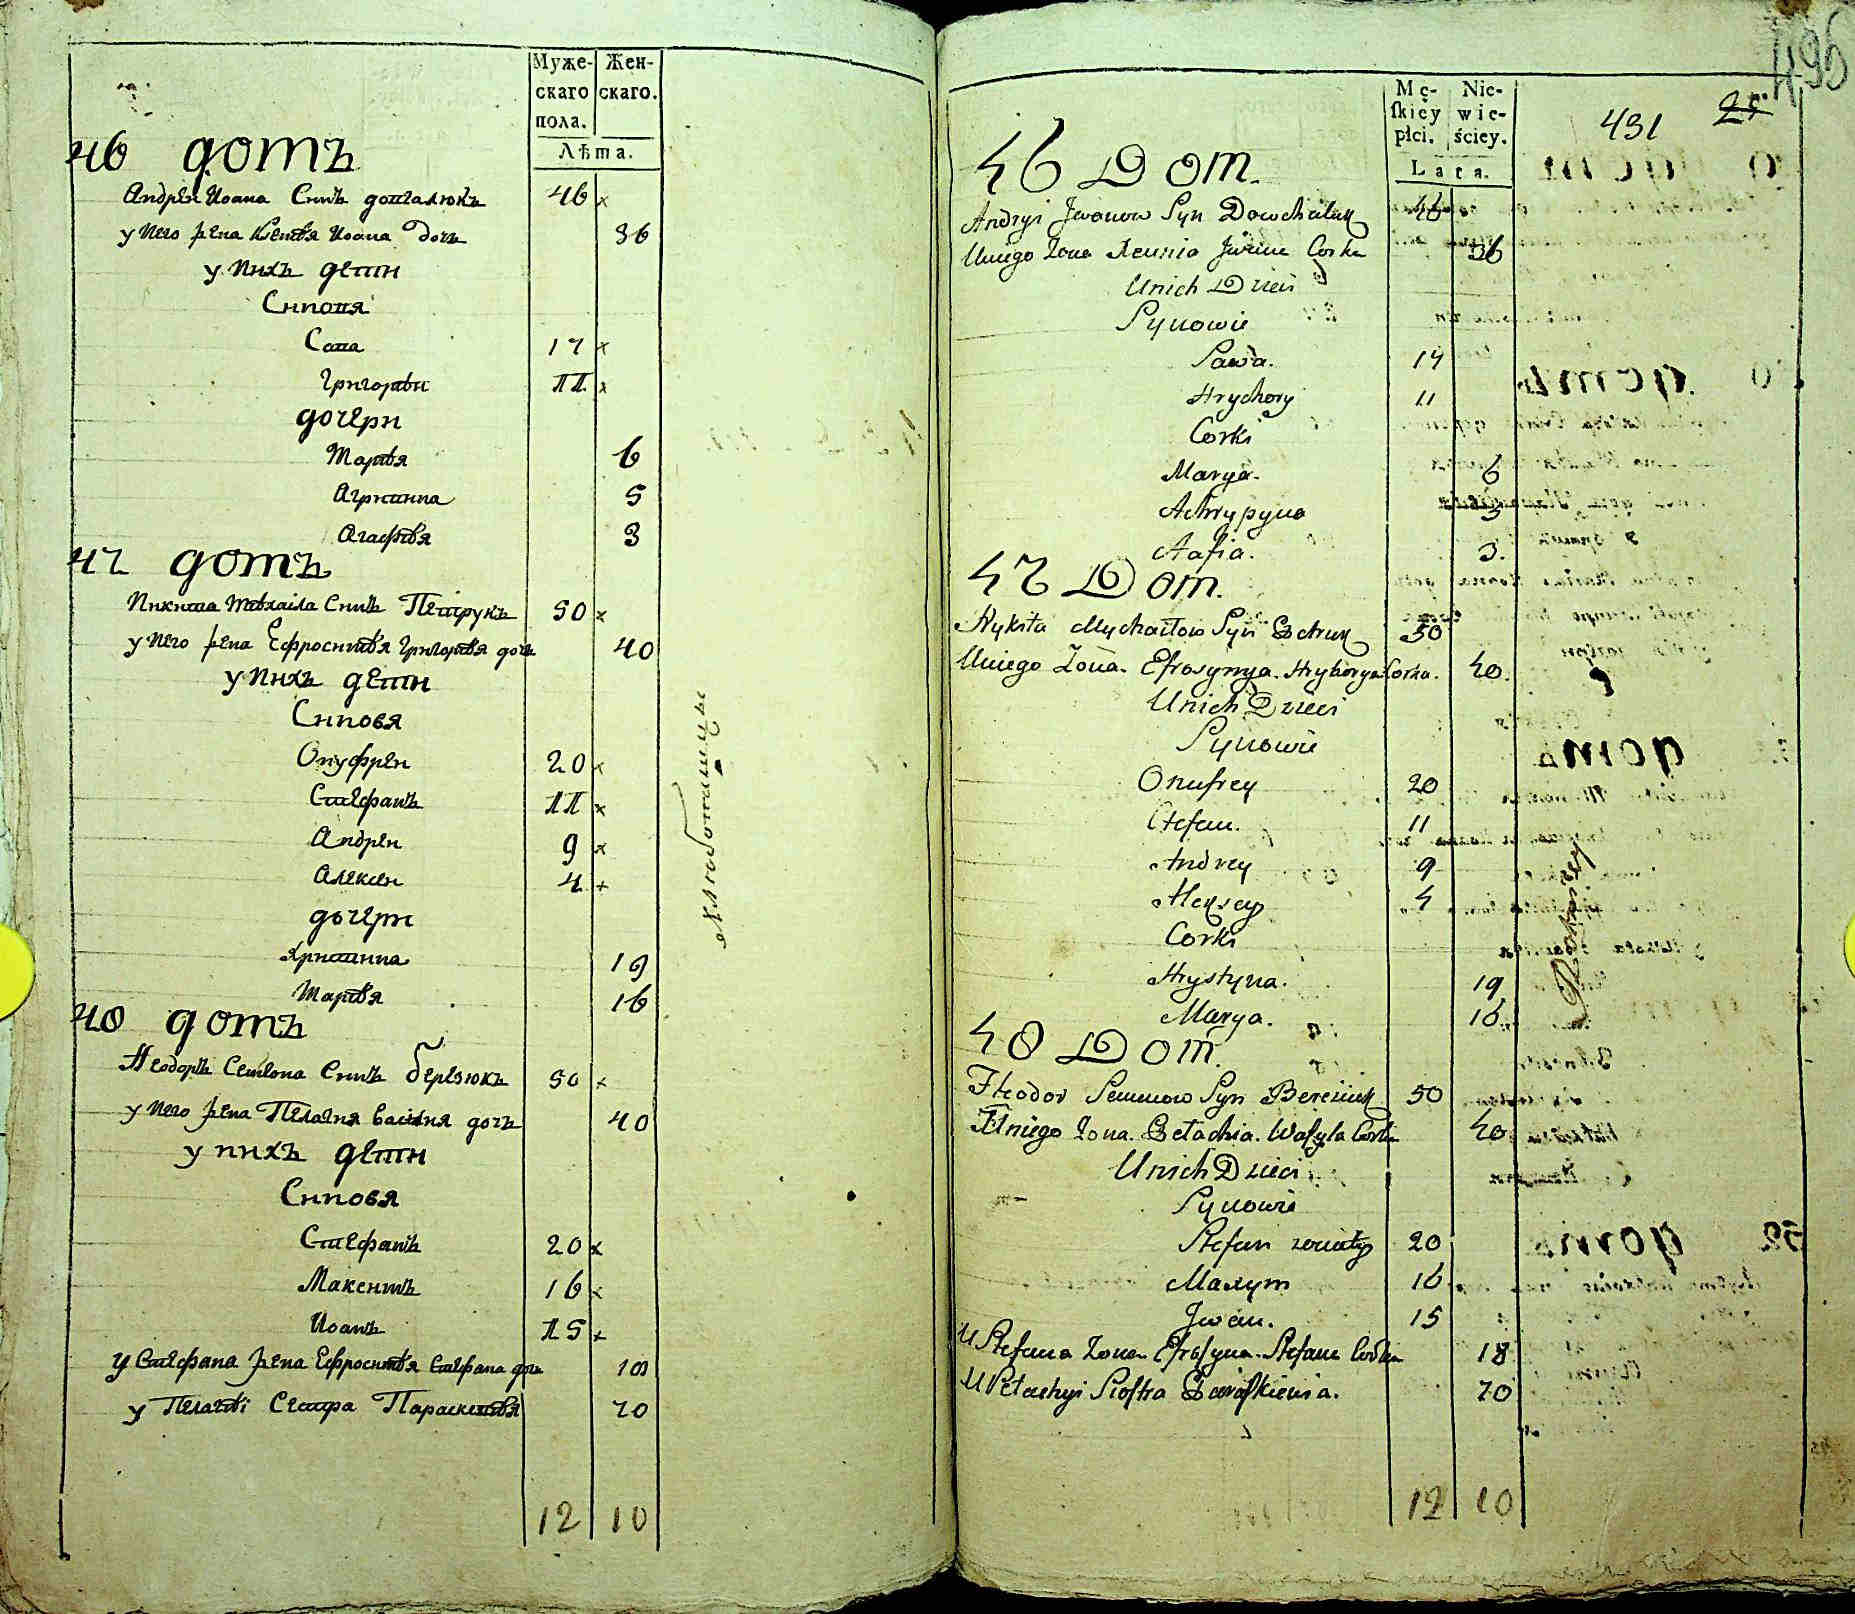 Муже-
скаго
пола.
Жен-
скаго.
Лѣта.
46 домъ
Андрей Иоана Синъ довгалюкъ 46 x
у него жена Ксенѣя Иоана дочь 36
у нихъ дети
Синовя
Сава 17 x
Григорѣи 11 x
дочери
Марѣя 6
Агрипина 5
Агафѣя 3
47 домъ
Никита Мѣхаила Синъ Петрукъ 50 x
у него жена Ефросинѣя Григорѣя дочь 40
у нихъ дети
Синовя
Онуфреи 20 x
Стефанъ 11 x
Андреи 9 x
Алексеи 4 x
дочери
Христина 19
Марѣя 16
48 домъ
Ѳеодоръ Семена Синъ березюкъ 50 x
у него жена Пелагия Василия дочь 40
у нихъ дети
Синовя
Стефанъ 20 x
Максимъ 16 x
Иоанъ 15 x
у Стефана жена Ефросинѣя Стефана дочь 18
у Пелагѣи Сестра Параскевѣя 70
12 10
Mę-
ſkiey
płci.
Nie-
wie-
ściey.
Lata.
495
431
25
46 Dom.
Andryi Jwanow Syn Dowhaluk 46
Uniego Zona Xeunia Jwana Corka 36
Unich Dzieci
Synowie
Sawa. 17
Hryhory 11
Corki
Marya. 6
5
Aafia. 3.
47 Dom.
Nykita Mychailow Syn Petruk 50
Uniego Zona. Efrosynya. Hryhorya Corka. 40.
Unich Dzieci
Synowie
Onufrey 20
Stefan. 11
Andrey 9
Alexey 4
Corki
Hrystyna. 19
Marya. 16
48 Dom.
Fteodor Semenow Syn Bereziuk 50
Uniego Zona. Pelachia. Wasyla Corka 40
Unich Dzieci
Synowie
Stefan zonaty 20
Maxym 16
Jwan. 15
U Stefana Zona Efrosyna. Stefana Corka 18
U Pelachyi Siostra Paraskiewia. 70
12 10